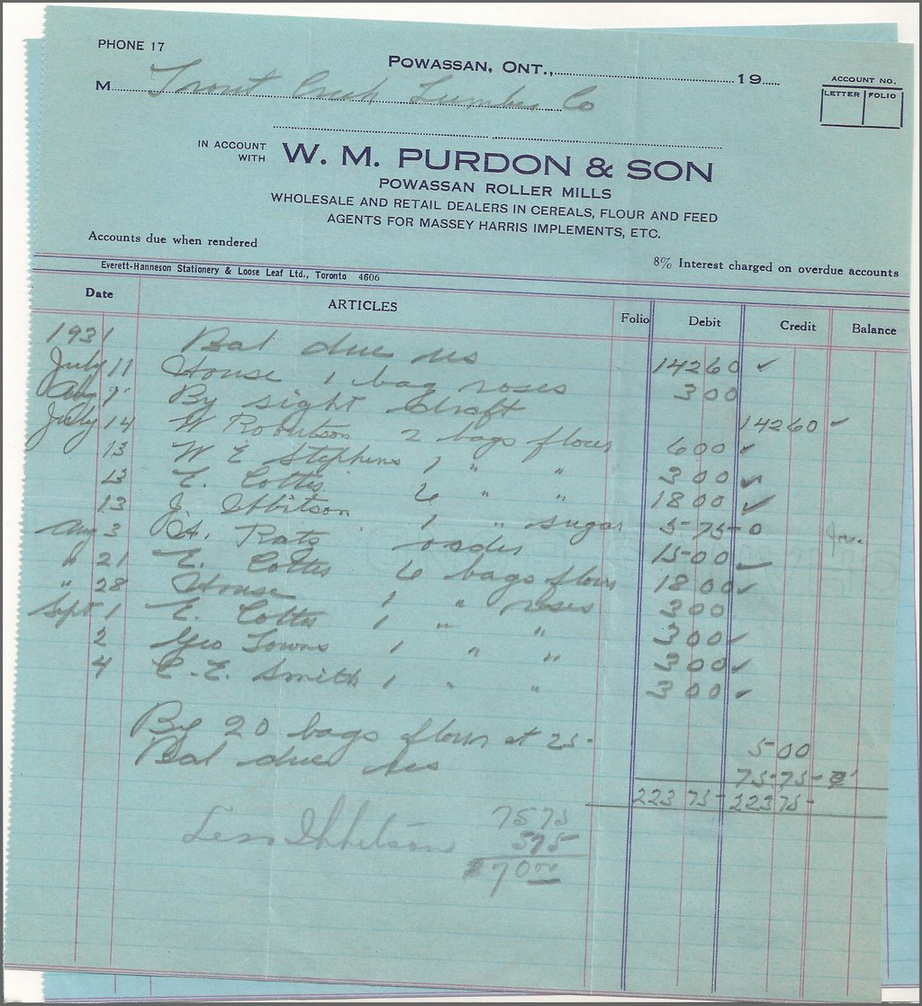 PHONE 17
POWASSAN, ONT., 19
ACCOUNT NO.
LETTER FOLIO
M Trout Creek Lumber Co
IN ACCOUNT WITH
W. M. PURDON & SON
POWASSAN ROLLER MILLS
WHOLESALE AND RETAIL DEALERS IN CEREALS, FLOUR AND FEED
AGENTS FOR MASSEY HARRIS IMPLEMENTS, ETC.
Accounts due when rendered
8% Interest charged on overdue accounts
Everett-Hanneson Stationery & Loose Leaf Ltd., Toronto 4606
Date ARTICLES Folio Debit Credit Balance
1931 Bal due us 142 60 ✓
July 11 House 1 bag roses 3 00
Aug 7 By sight draft 142 60 ✓
July 14 W Robertson 2 bags flour 6 00 ✓
13 W E Stephens 1 " " 3 00 ✓
13 E. Cottes 6 " " 18 00 ✓
13 J. Ibbitson 1 " sugar 5 75 0
Aug 3 A. Ratz 15 00 ✓
" 21 E. Cottes 6 bags flour 18 00 ✓
" 28 House 1 " roses 3 00
Sept 1 E. Cottes 1 " " 3 00 ✓
2 Geo Towns 1 " " 3 00 ✓
4 C. E. Smith 1 " " 3 00 ✓
By 20 bags flour at 25 5 00
Bal due us 75 75
223 75 223 75
75 75
Less Ibbitson 5 75
$70 00